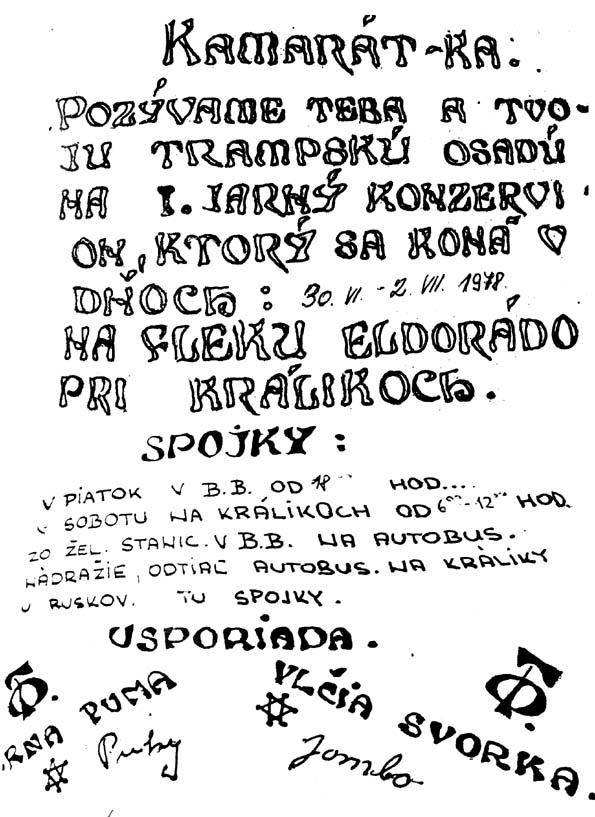 KAMARÁT-KA:
POZÝVAME TEBA A TVO-
JU TRAMPSKÚ OSADÚ
NA I. JARNÝ KONZERVI
ON, KTORÝ SA KONÁ V
DŇOCH: 30. VI. - 2. VII. 1978.
NA FLEKU ELDORÁDO
PRI KRÁLIKOCH.
SPOJKY:
V PIATOK V B.B. OD 18⁰⁰ HOD....
V SOBOTU NA KRÁLIKOCH OD 6⁰⁰-12⁰⁰ HOD.
ZO ŽEL. STANIC. V B.B. NA AUTOBUS.
NÁDRAŽIE, ODTIAĽ AUTOBUS. NA KRÁLIKY
U RUSKOV. TU SPOJKY.
USPORIADA.
TS. RNA PUMA
VLČIA SVORKA.
Jombo